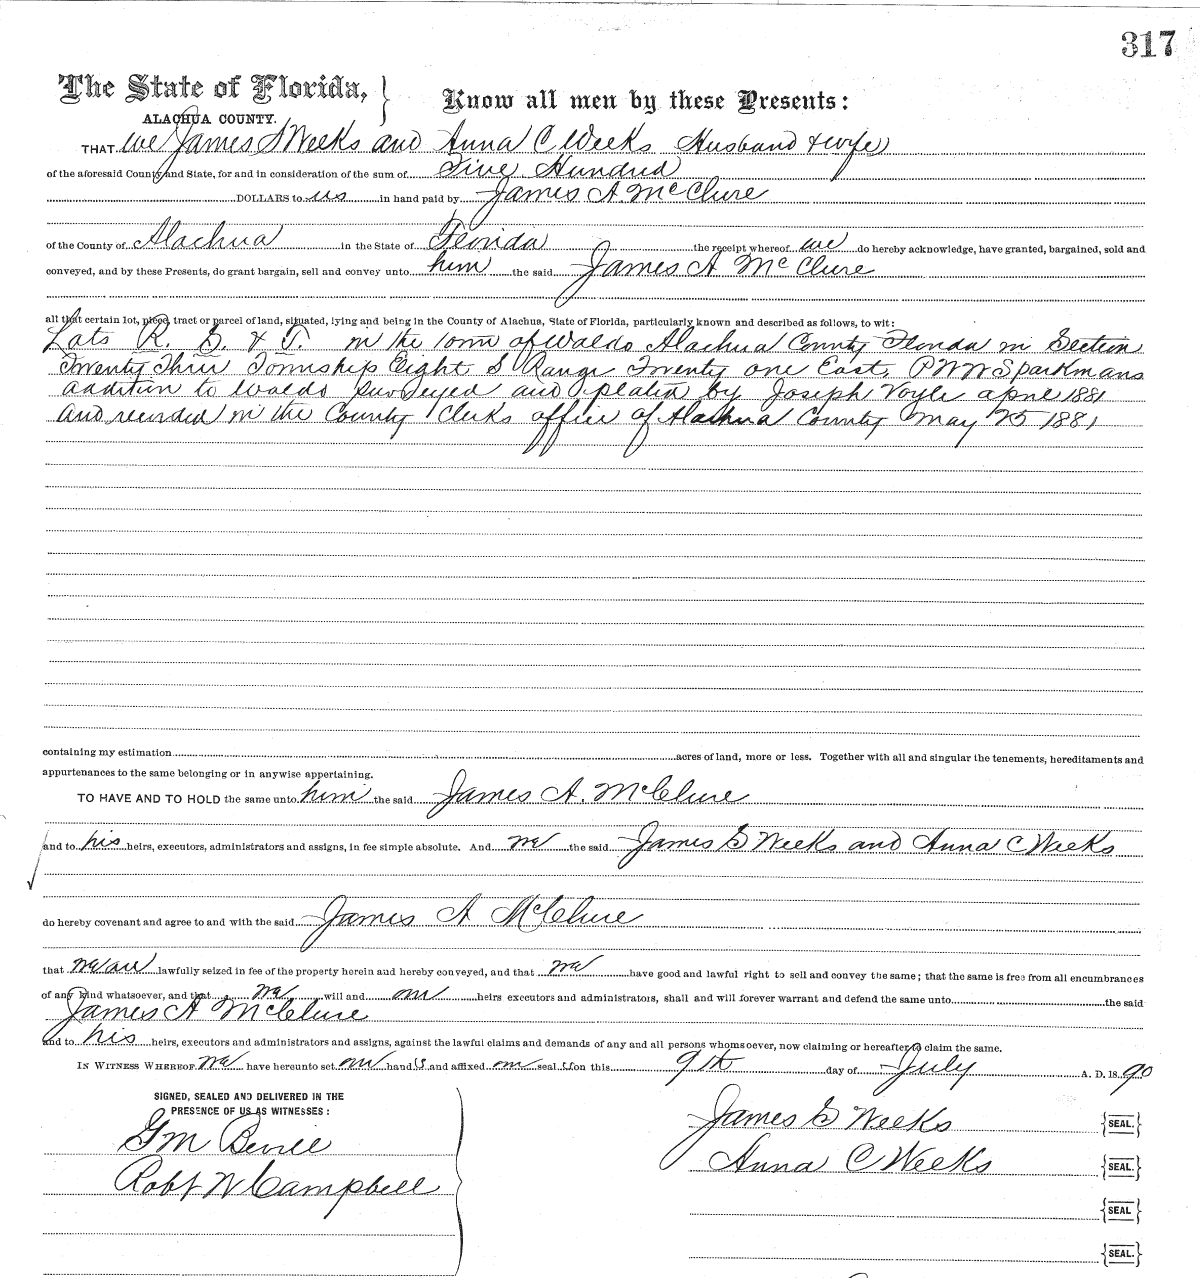 317
The State of Florida,
ALACHUA COUNTY.
Know all men by these Presents:
THAT we James S Weeks and Anna C Weeks Husband & wife
of the aforesaid County and State, for and in consideration of the sum of Five Hundred
DOLLARS to us in hand paid by James A. McClure
of the County of Alachua in the State of Florida the receipt whereof we do hereby acknowledge, have granted, bargained, sold and
conveyed, and by these Presents, do grant bargain, sell and convey unto him the said James A McClure
all that certain lot, piece, tract or parcel of land, situated, lying and being in the County of Alachua, State of Florida, particularly known and described as follows, to wit:
Lots R. S. & T. in the town of Waldo Alachua County Florida in Section
Twenty Three Township Eight S Range Twenty one East. Sparkmans
addition to Waldo surveyed and plated by Joseph Voyle 1881
and recorded in the County Clerks office of Alachua County May 25 1881
containing my estimation acres of land, more or less. Together with all and singular the tenements, hereditaments and
appurtenances to the same belonging or in anywise appertaining.
TO HAVE AND TO HOLD the same unto him the said James A. McClure
and to his heirs, executors, administrators and assigns, in fee simple absolute. And we the said James S Weeks and Anna C Weeks
do hereby covenant and agree to and with the said James A McClure
that we are lawfully seized in fee of the property herein and hereby conveyed, and that we have good and lawful right to sell and convey the same; that the same is free from all encumbrances
of any kind whatsoever, and that we will and our heirs executors and administrators, shall and will forever warrant and defend the same unto the said
James A McClure
and to his heirs, executors and administrators and assigns, against the lawful claims and demands of any and all persons whomsoever, now claiming or hereafter to claim the same.
IN WITNESS WHEREOF we have hereunto set our hands and affixed our seals on this 9th day of July A. D. 1890
SIGNED, SEALED AND DELIVERED IN THE
PRESENCE OF US AS WITNESSES:
James S Weeks SEAL.
G M
Anna C Weeks SEAL.
Robt W Campbell
SEAL
SEAL.